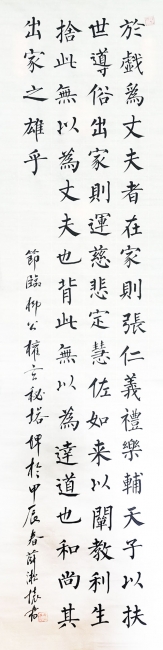 於戲為丈夫者在家則張仁義禮樂輔天子以扶
世導俗出家則運慈悲定慧佐如来以闡教利生
捨此無以為丈夫也背此無以為達道也和尚其
出家之雄乎
節臨柳公權玄秘塔碑於甲辰春薛